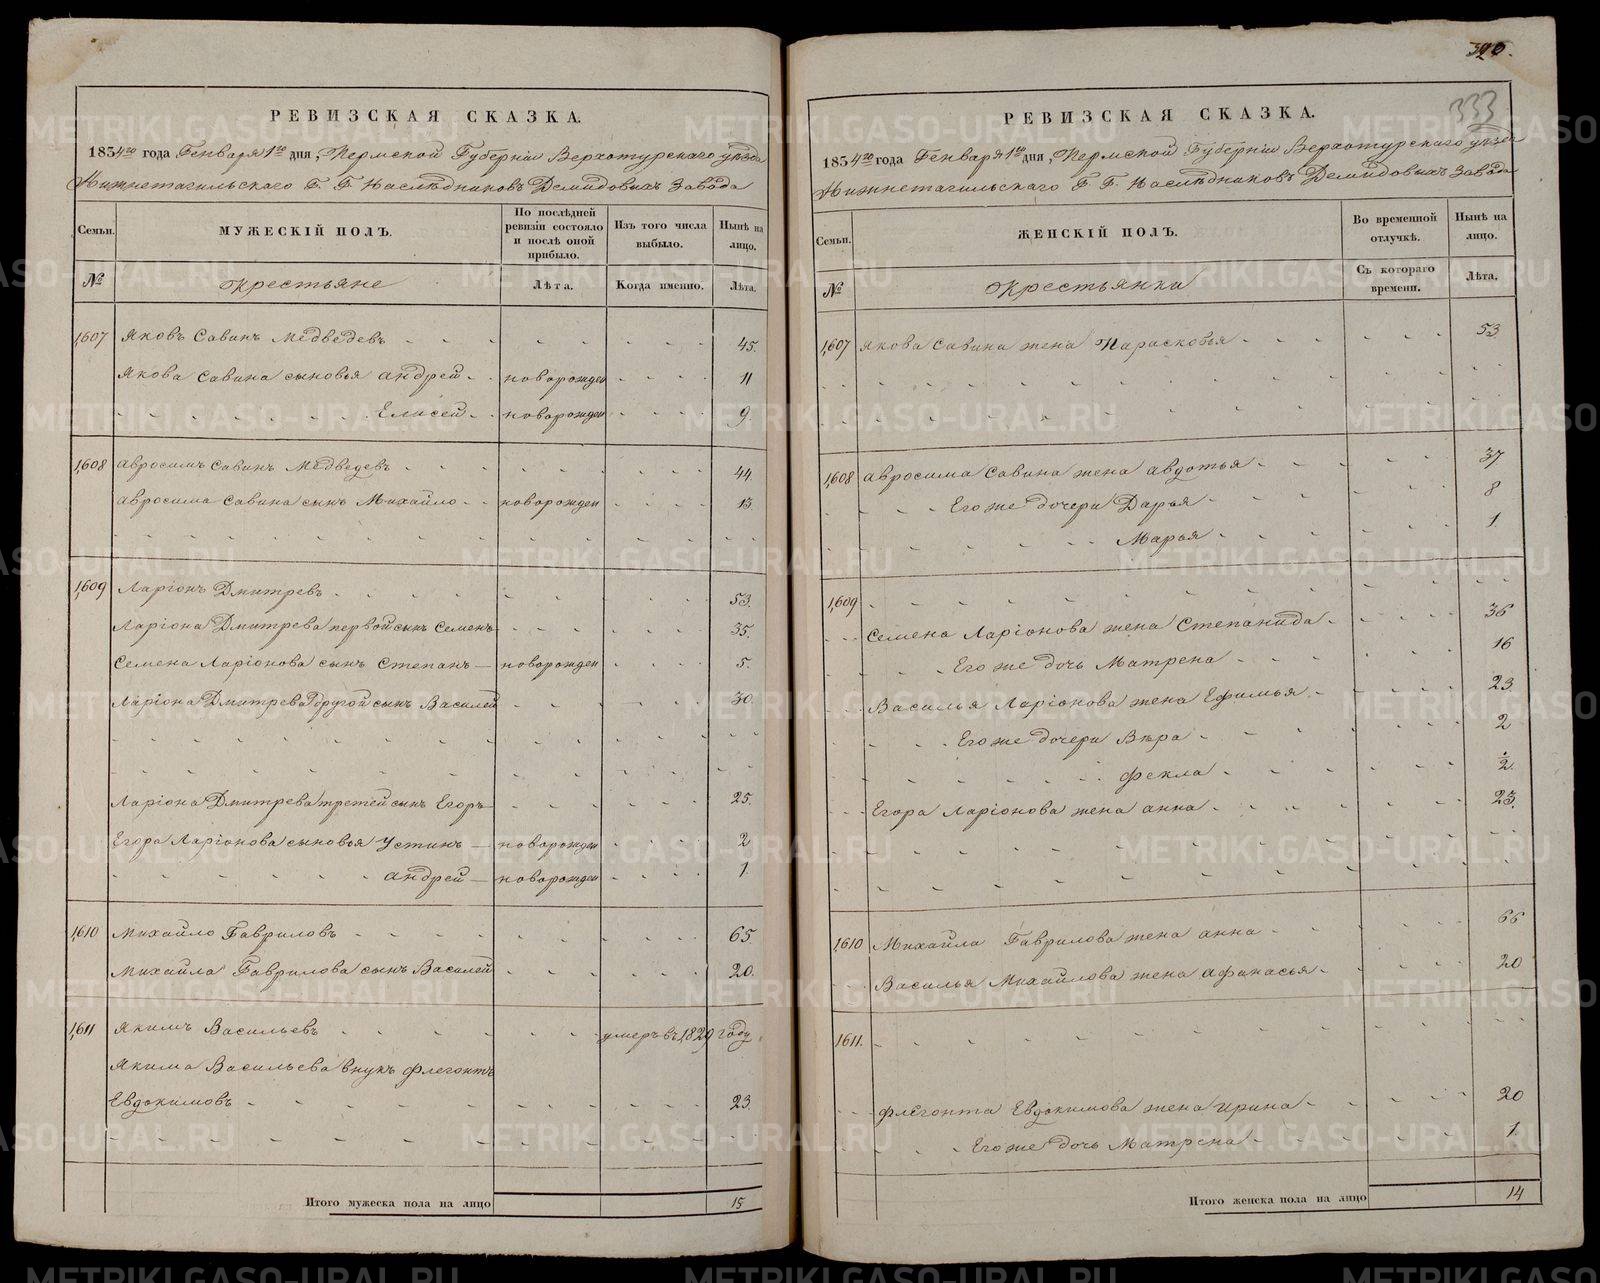 РЕВИЗСКАЯ СКАЗКА.
1834го года Генваря 1го дня, Пермской Губерніи Верхотурскаго уѣзда
Нижнетагильскаго Г. Г. Наслѣдниковъ Демидовыхъ Завода
Семьи. МУЖЕСКІЙ ПОЛЪ. По послѣдней ревизіи состояло и послѣ оной прибыло. Изъ того числа выбыло. Нынѣ на лицо.
№ Крестьяне Лѣта. Когда именно. Лѣта.
1,607 Яковъ Савинъ Медведевъ 45.
Якова Савина сыновья андрей новорожден 11
Елисей новорожден 9.
1,608 Авросимъ Савинъ Медведевъ 44.
Авросима Савина сынъ Михайло новорожден 13.
1,609 Ларіонъ Дмитревъ 53.
Ларіона Дмитрева первой сынъ Семенъ 35.
Семена Ларіонова сынъ Степанъ новорожден 5.
Ларіона Дмитрева другой сынъ Василей 30.
Ларіона Дмитрева третей сынъ Егоръ 25.
Егора Ларіонова сыновья Устинъ новорожден 2
андрей новорожден 1.
1,610 Михайло Гавриловъ 65.
Михайла Гаврилова сынъ Василей 20.
1,611 Якимъ Васильевъ умеръ въ 1,829 году
Якима Васильева внукъ Флегонтъ
Евдокимовъ 23.
Итого мужеска пола на лицо 15
320.
333
РЕВИЗСКАЯ СКАЗКА.
1834го года Генваря 1го дня, Пермской Губерніи Верхотурскаго уѣзда
Нижнетагильскаго Г. Г. Наслѣдниковъ Демидовыхъ Завода
Семьи. ЖЕНСКІЙ ПОЛЪ. Во временной отлучкѣ. Нынѣ на лицо.
№ Крестьянки Съ котораго времени. Лѣта.
1,607 Якова Савина жена Парасковья 53
1,608 Авросима Савина жена авдотья 37
Его же дочери Дарья 8
Марья 1.
1,609
Семена Ларіонова жена Степанида 36
Его же дочь Матрена 16
Василья Ларіонова жена Ефимья 23.
Его же дочери Вѣра 2
Фекла ½.
Егора Ларіонова жена анна 23.
1,610 Михайла Гаврилова жена анна 66
Василья Михайлова жена афанасья 20
1611.
Флегонта Евдокимова жена ирина 20
Его же дочь Матрена 1.
Итого женска пола на лицо 14
METRIKI.GASO-URAL.RU